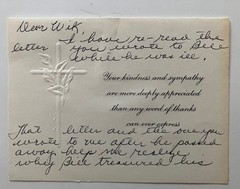 Dear Wik
I have re-read the
letter you wrote to Bill
while he was ill.
Your kindness and sympathy
are more deeply appreciated
than any word of thanks
can ever express
That letter and the one you
wrote to me after he passed
away help me realize
why Bill treasured his